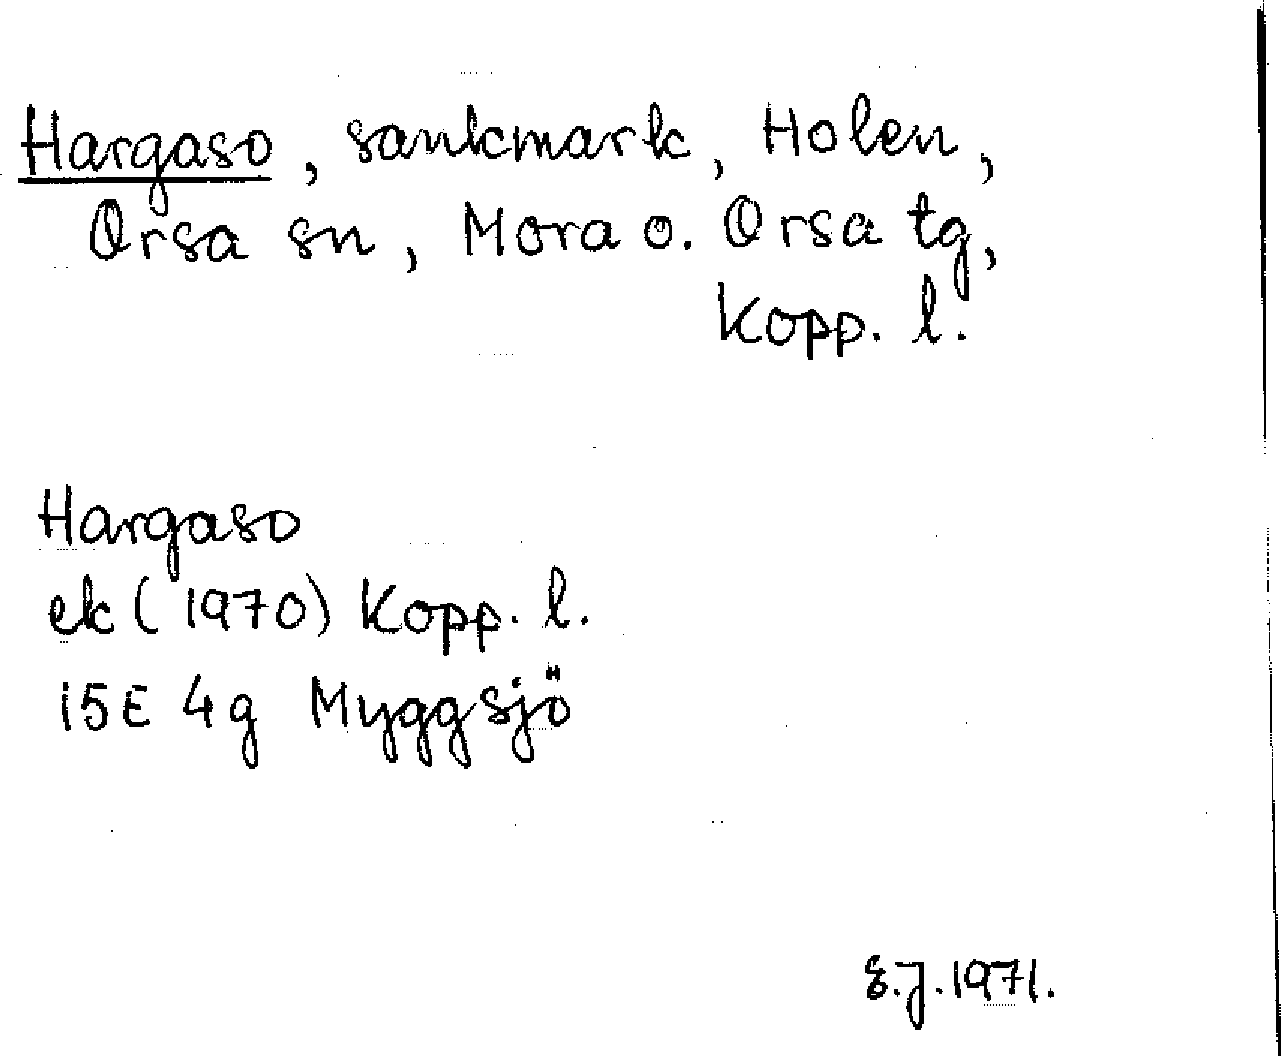 Hargaso, sankmark, Holen,
Orsa sn, Mora o. Orsa tg,
Kopp. l.
Hargaso
ek (1970) Kopp. l.
15E 4g Myggsjö
E.J. 1971.